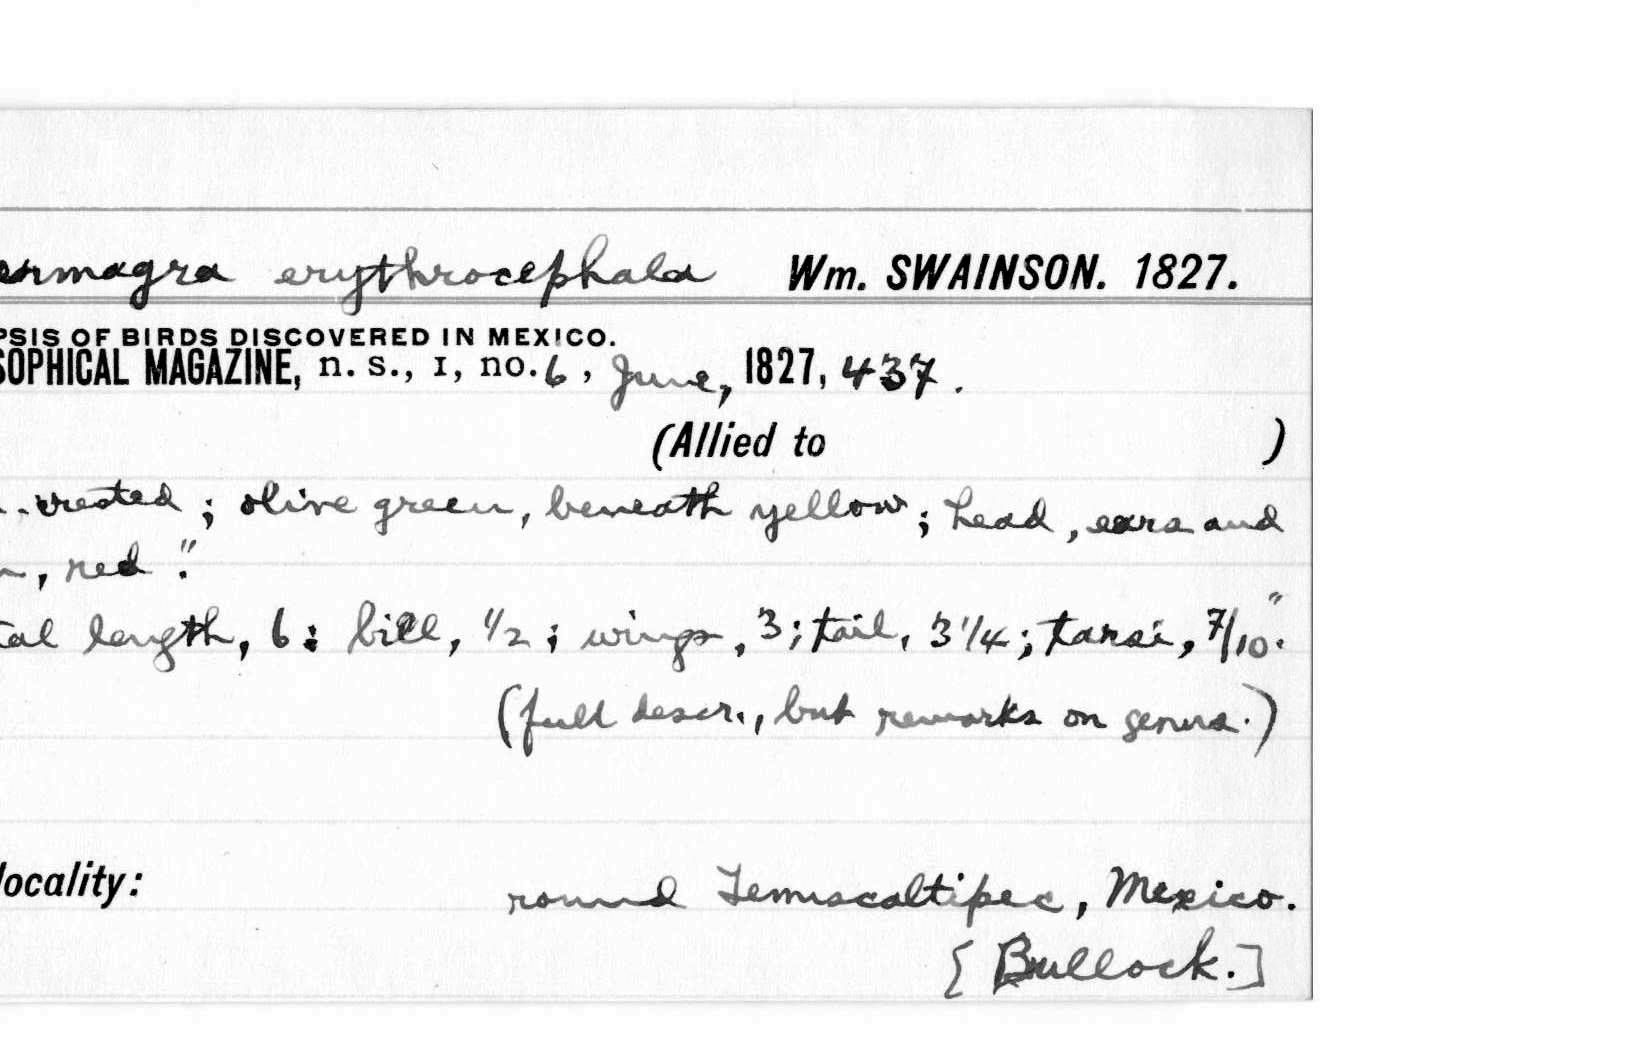 ermagra erythrocephala Wm. SWAINSON. 1827.
PSIS OF BIRDS DISCOVERED IN MEXICO.
SOPHICAL MAGAZINE, n. s., I, no. 6, June, 1827, 437.
(Allied to )
crested; olive green, beneath yellow; head, ears and
, red."
tal length, 6; bill, 1/2; wings, 3; tail, 3 1/4; tarsi, 7/10."
(full descr., but remarks on genus.)
locality: round Temiscaltipec, Mexico.
[Bullock.]